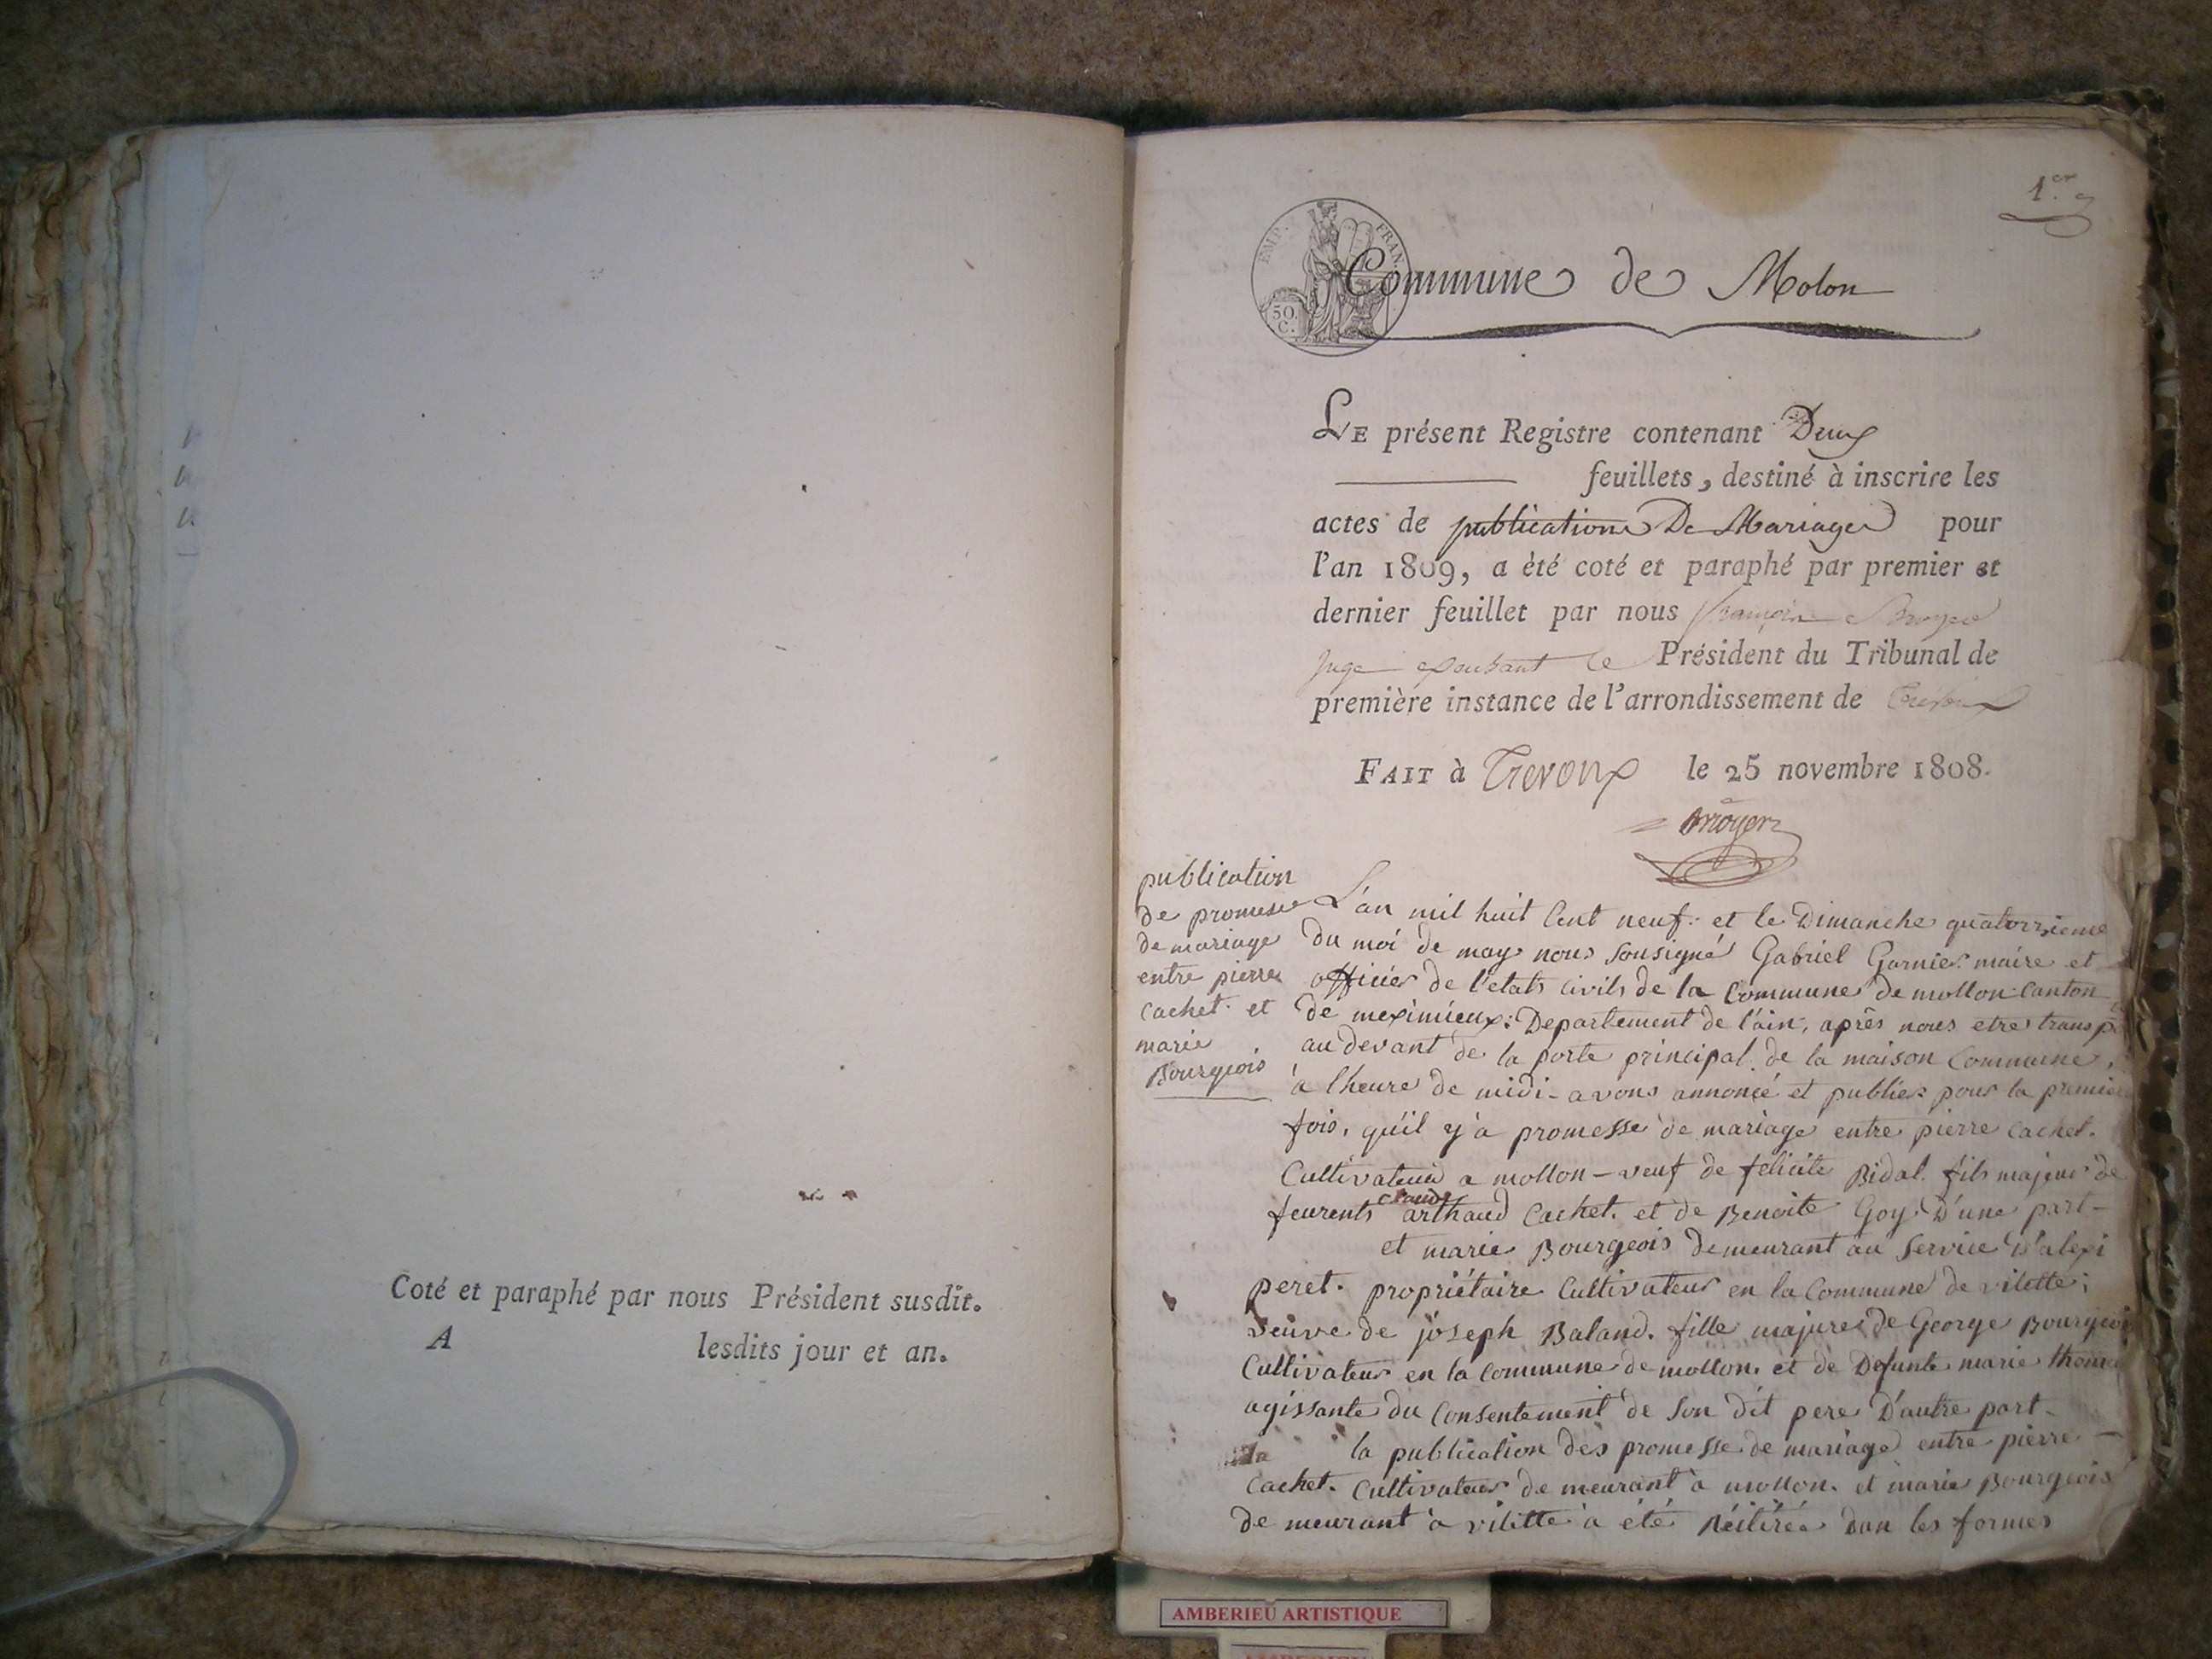 Coté et paraphé par nous Président susdit.
A lesdits jour et an.
1.er
EMP. FRAN.
50 C.
Commune de Molon
LE présent Registre contenant Deux
feuillets, destiné à inscrire les
actes de publications De Mariages pour
l'an 1809, a èté coté et paraphé par premier et
dernier feuillet par nous françois Broyer
Juge le Président du Tribunal de
première instance de l'arrondissement de Trévoux
FAIT à Trevoux le 25 novembre 1808.
Broyer
publication
de promesse
de mariage
entre pierre
cachet. et
marie
Bourgeois
L'an mil huit Cent neuf: et le Dimanche quatorzieme
du moi de may nous Sousigné Gabriel Garnier maire et
officier de l'etats civils de la Commune de mollon Canton
de meximieux: Departement de l'ain, après nous etre transp
au devant de la porte principal de la maison Commune,
à l'heure de midi - avons annoncé et publier pour la premier
fois, qu'il y a promesse de mariage entre pierre cachet.
Cultivateur a mollon - veuf de felicite Bidal. fils majeur de
feurents claude arthaud Cachet. et de Benoite Goy. D'une part -
et marie Bourgeois demeurant au Service d'alexi
peret. propriétaire Cultivateur en la Commune de vilette;
veuve de joseph Baland. fille majure de George Bourgeoi
Cultivateur en la Commune de mollon. et de Defunte marie thoma
agissante du Consentement de Son dit pere D'autre part -
la publication des promesse de mariage entre pierre -
Cachet. Cultivateur de meurant à mollon. et marie Bourgeois
de meurant à vilette à été Réitérée dan les formes
AMBERIEU ARTISTIQUE